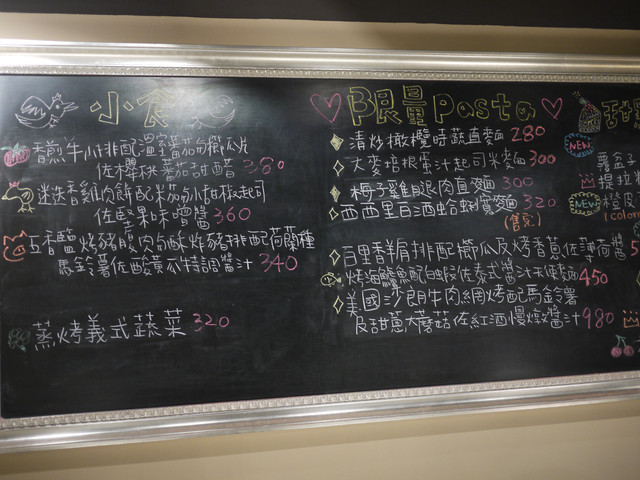 小食
香煎牛小排配溫室蕃茄句櫛瓜片
佐櫻桃蕃茄甜醋 380
迷迭香雞肉餅配米茄句甜椒起司
佐堅果味噌醬 360
五香鹽烤豬腿肉句酥炸豬排配荷蘭種
馬鈴薯佐酸黃瓜特調醬汁 340
蒸烤義式蔬菜 320
限量 pasta
清炒橄欖時蔬直麵 280
大麥培根蛋汁起司米麵 300
梅子雞腿肉直麵 300
西西里白酒蛤蜊寬麵 320
(售完)
百里香羊肩排配櫛瓜及烤香蔥佐薄荷醬
烤海鱺魚配白蝦佐泰式醬汁天使麵 450
美國沙朗牛肉網烤配馬鈴薯
及甜蔥大蘑菇佐紅酒慢燉醬汁 980
甜
NEW
提拉
NEW
橙皮